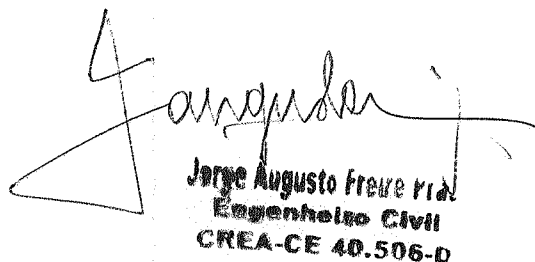 Jorge Augusto Freire
Engenheiro Civil
CREA-CE 40.506-D